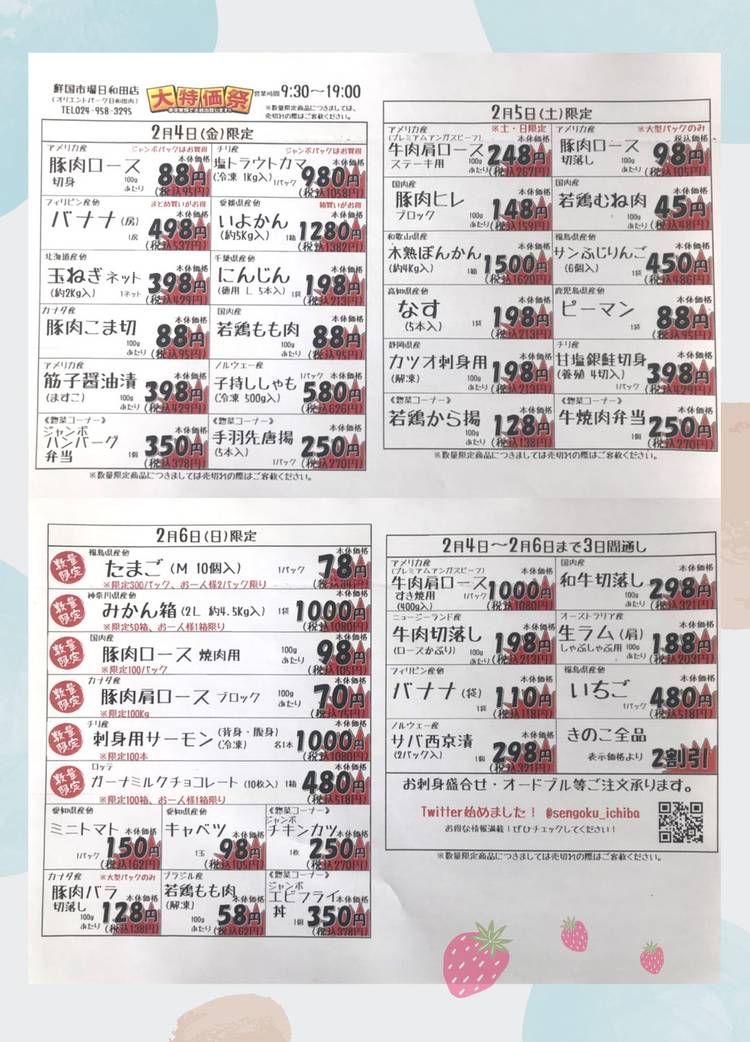 鮮国市場日和田店
(オリエントパーク日和田内)
TEL024-958-3295
大特価祭
営業時間 9:30～19:00
※数量限定商品につきましては、
売切れの際はご容赦ください。
2月4日(金)限定
アメリカ産 ジャンボパックはお買得
豚肉ロース
切身 100gあたり 本体価格 88円 (税込95円)
チリ産 ジャンボパックはお買得
塩トラウトカマ
(冷凍 1Kg入) 1パック 本体価格 980円 (税込1058円)
フィリピン産他 まとめ買いがお得
バナナ(房)
1房 本体価格 498円 (税込537円)
愛媛県産他 箱買いがお得
いよかん
(約5Kg入) 1箱 本体価格 1280円 (税込1382円)
北海道産他
玉ねぎ ネット
(約2Kg入) 1ネット 本体価格 398円 (税込429円)
千葉県産他
にんじん
(徳用 L 5本入) 1袋 本体価格 198円 (税込213円)
カナダ産
豚肉こま切
100gあたり 本体価格 88円 (税込95円)
国内産
若鶏もも肉
100gあたり 本体価格 88円 (税込95円)
アメリカ産
筋子醤油漬
(ますこ) 100gあたり 本体価格 398円 (税込429円)
ノルウェー産
子持ししゃも
(冷凍 500g入) 1パック 本体価格 580円 (税込626円)
《惣菜コーナー》
ジャンボ
ハンバーグ
弁当 1個 本体価格 350円 (税込378円)
《惣菜コーナー》
手羽先唐揚
(5本入) 1パック 本体価格 250円 (税込270円)
※数量限定商品につきましては売切れの際はご容赦ください。
2月5日(土)限定
アメリカ産 ※土・日限定
(プレミアムアンガスビーフ)
牛肉肩ロース
ステーキ用 100gあたり 本体価格 248円 (税込267円)
アメリカ産 ※大型パックのみ
豚肉ロース
切落し 100gあたり 税込価格 98円 (税込105円)
国内産
豚肉ヒレ
ブロック 100gあたり 本体価格 148円 (税込159円)
国内産
若鶏むね肉
100gあたり 本体価格 45円 (税込48円)
和歌山県産
木熟ぽんかん
(約4Kg入) 1箱 本体価格 1500円 (税込1620円)
福島県産他
サンふじりんご
(6個入) 1袋 本体価格 450円 (税込486円)
高知県産他
なす
(5本入) 1袋 本体価格 198円 (税込213円)
鹿児島県産他
ピーマン
1袋 本体価格 88円 (税込95円)
静岡県産
カツオ刺身用
(解凍) 100gあたり 本体価格 198円 (税込213円)
チリ産
甘塩銀鮭切身
(養殖 4切入) 1パック 本体価格 398円 (税込429円)
《惣菜コーナー》
若鶏から揚
100gあたり 本体価格 128円 (税込138円)
《惣菜コーナー》
牛焼肉弁当
1個 本体価格 250円 (税込270円)
※数量限定商品につきましては売切れの際はご容赦ください。
2月6日(日)限定
数量限定 福島県産他
たまご (M 10個入) 1パック 本体価格 78円
※限定300パック、お一人様2パック限り
数量限定 神奈川県産他
みかん箱 (2L 約4.5Kg入) 1袋 本体価格 1000円 (税込1080円)
※限定50箱、お一人様1箱限り
数量限定 国内産
豚肉ロース 焼肉用 100gあたり 本体価格 98円 (税込105円)
※限定100パック
数量限定 カナダ産
豚肉肩ロース ブロック 100gあたり 本体価格 70円 (税込75円)
※限定100Kg
数量限定 チリ産
刺身用サーモン (背身・腹身)(冷凍) 各1本 本体価格 1000円 (税込1080円)
※限定100本
数量限定 ロッテ
ガーナミルクチョコレート (10枚入) 1箱 本体価格 480円 (税込518円)
※限定100箱、お一人様1箱限り
愛知県産他
ミニトマト
1パック 本体価格 150円 (税込162円)
愛知県産他
キャベツ
1玉 本体価格 98円 (税込105円)
《惣菜コーナー》
ジャンボ
チキンカツ
1枚 本体価格 250円 (税込270円)
カナダ産 ※大型パックのみ
豚肉バラ
切落し 100gあたり 本体価格 128円 (税込138円)
ブラジル産
若鶏もも肉
(解凍) 100gあたり 本体価格 58円 (税込62円)
《惣菜コーナー》
ジャンボ
エビフライ
丼 1個 本体価格 350円 (税込378円)
2月4日～2月6日まで3日間通し
アメリカ産
(プレミアムアンガスビーフ)
牛肉肩ロース
すき焼用
(400g入) 1パック 本体価格 1000円 (税込1080円)
国内産
和牛切落し
100gあたり 本体価格 298円 (税込321円)
ニュージーランド産
牛肉切落し
(ロースかぶり) 100gあたり 本体価格 198円 (税込213円)
オーストラリア産
生ラム(肩)
しゃぶしゃぶ用 100gあたり 本体価格 188円 (税込203円)
フィリピン産他
バナナ(袋)
1袋 本体価格 110円 (税込118円)
福島県産
いちご
1パック 本体価格 480円 (税込518円)
ノルウェー産
サバ西京漬
(2パック入) 1個 本体価格 298円 (税込321円)
きのこ全品
表示価格より 2割引
お刺身盛合せ・オードブル等ご注文承ります。
Twitter始めました! @sengoku_ichiba
お得な情報満載!ぜひチェックしてください!
※数量限定商品につきましては売切れの際はご容赦ください。